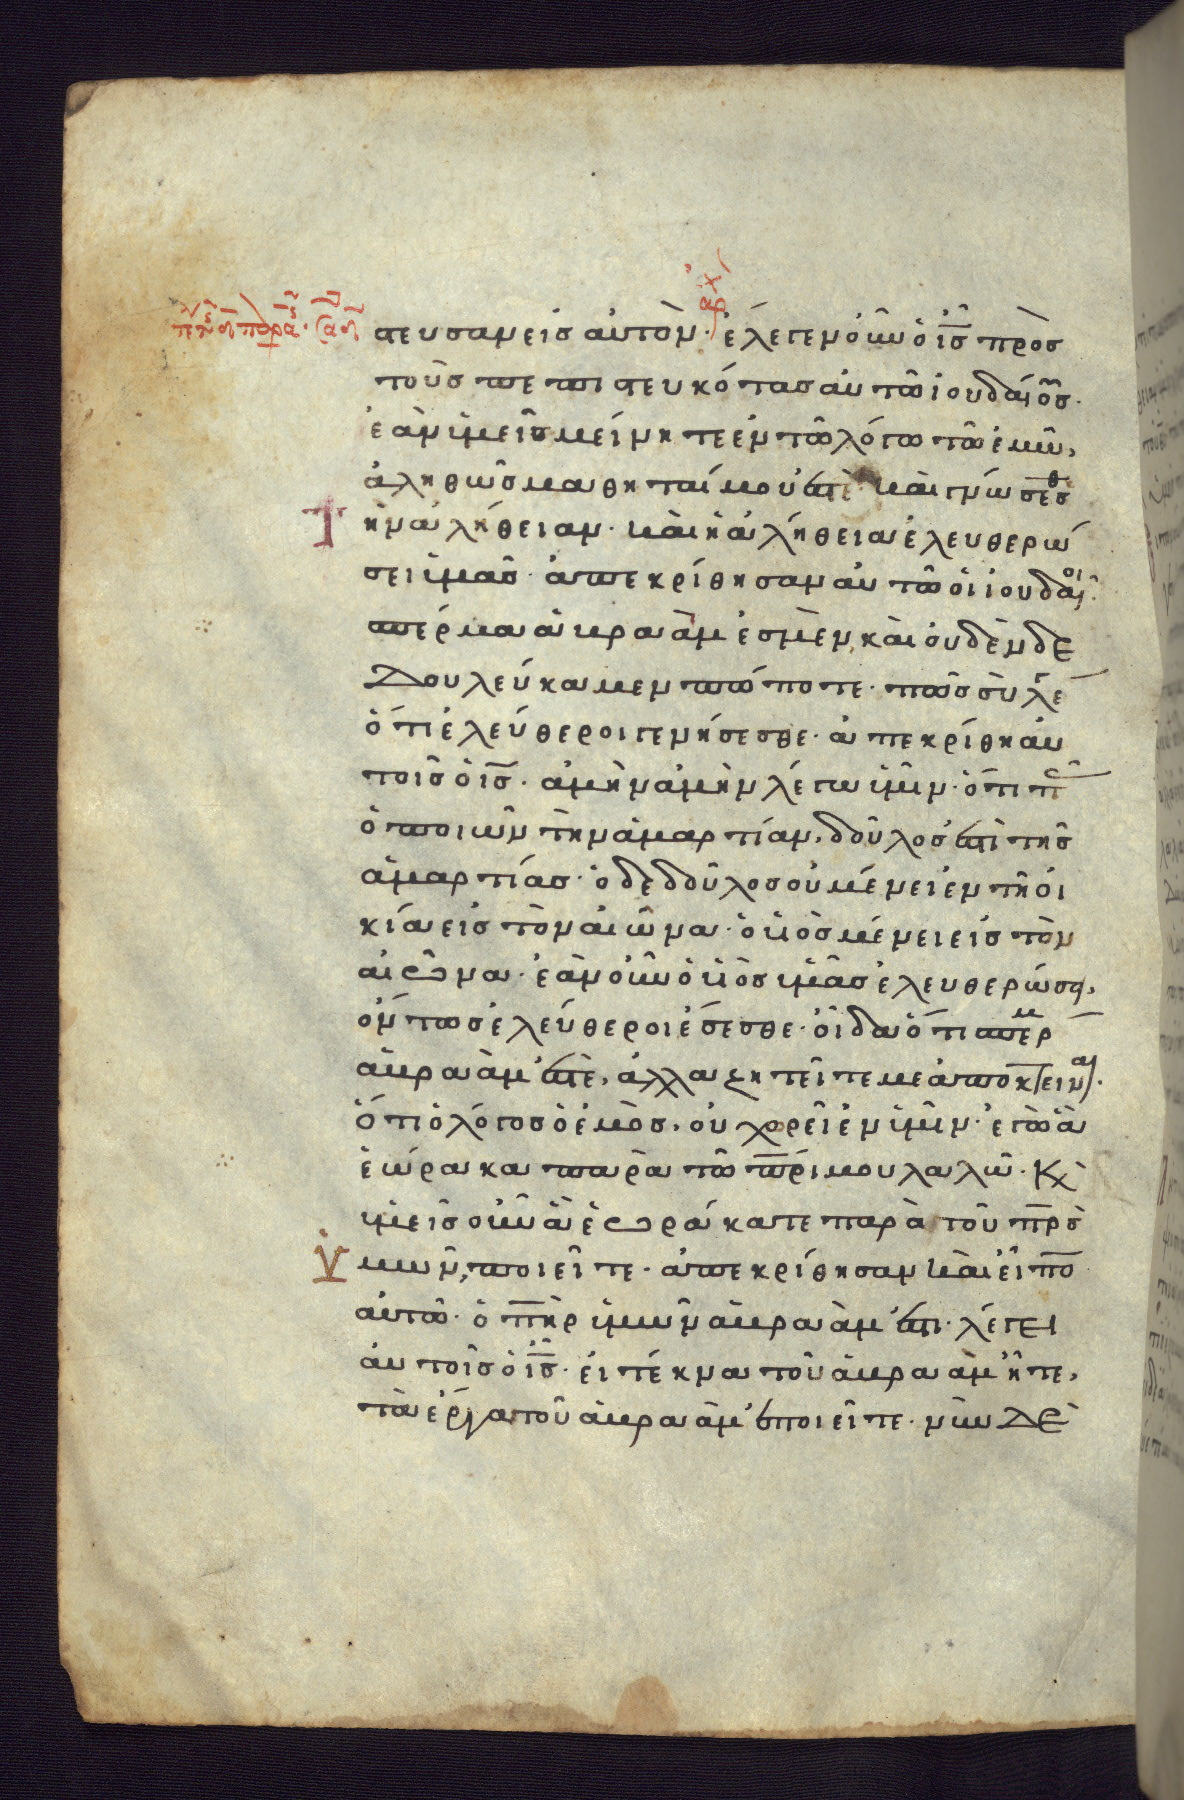 στευσαν εἰς αὐτόν· ἔλεγεν οὖν ὁ ῑς̄ πρὸσ
τοὺσ πεπιστευκότασ αὐτῶ ἰουδαίουσ·
ἐὰν ὑμεῖσ μείνητε ἐν τῶ λόγω τῶ ἐμῶ,
ἀληθῶσ μαθηταί μου ἐστὲ· καὶ γνώσεσθ
τ ὴν ἀλήθειαν· καὶ ἡ ἀλήθεια ἐλευθερώ
σει ὑμᾶσ· ἀπεκρίθησαν αὐτῶ οἱ ἰουδαῖοι·
σπέρμα ἀβραὰμ ἐσμὲν, καὶ οὐδενὶ δε
δουλεύκαμεν πώποτε· πῶσ σὺ λέ
ὅτι ἐλεύθεροι γενήσεσθε· ἀπεκρίθη αὐ
τοῖσ ὁ ῑς̄· ἀμὴν ἀμὴν λέγω ὑμῖν· ὅτι π
ὁ ποιῶν τὴν ἁμαρτίαν, δοῦλοσ ἐστὶ τῆσ
ἁμαρτίασ· ὁ δὲ δοῦλοσ οὐ μένει ἐν τῆ οἰ
κία εἰσ τὸν αἰῶνα· ὁ υἱὸσ μένει εἰσ τὸν
αἰῶνα· ἐὰν οὖν ὁ υἱὸσ ὑμᾶσ ἐλευθερώση,
ὄντωσ ἐλεύθεροι ἔσεσθε· οἶδα ὅτι σπέρμ
ἀβραὰμ ἐστὲ, ἀλλα ζητεῖτε με ἀποκτειναι·
ὅτι ὁ λόγοσ ὁ ἐμὸσ, οὐ χορεῖ ἐν ὑμῖν· ἐγὼ ἃ
ἑώρακα παρὰ τῶ π̅ρ̅ι μου λαλῶ· κ̀
ὑμεῖσ οὖν ἃ ἑωράκατε παρὰ τοῦ π̅ρ̅σ
ὑ μῶν, ποιεῖτε· ἀπεκρίθησαν καὶ εἶπο
αὐτῶ· ὁ π̅η̅ρ ἡμῶν ἀβραὰμ ἐστι· λέγει
αὐτοῖσ ὁ ῑς̄· εἰ τέκνα τοῦ ἀβραὰμ ἦτε,
τὰ ἔργα τοῦ ἀβραὰμ ἐποιεῖτε· νῦν δὲ